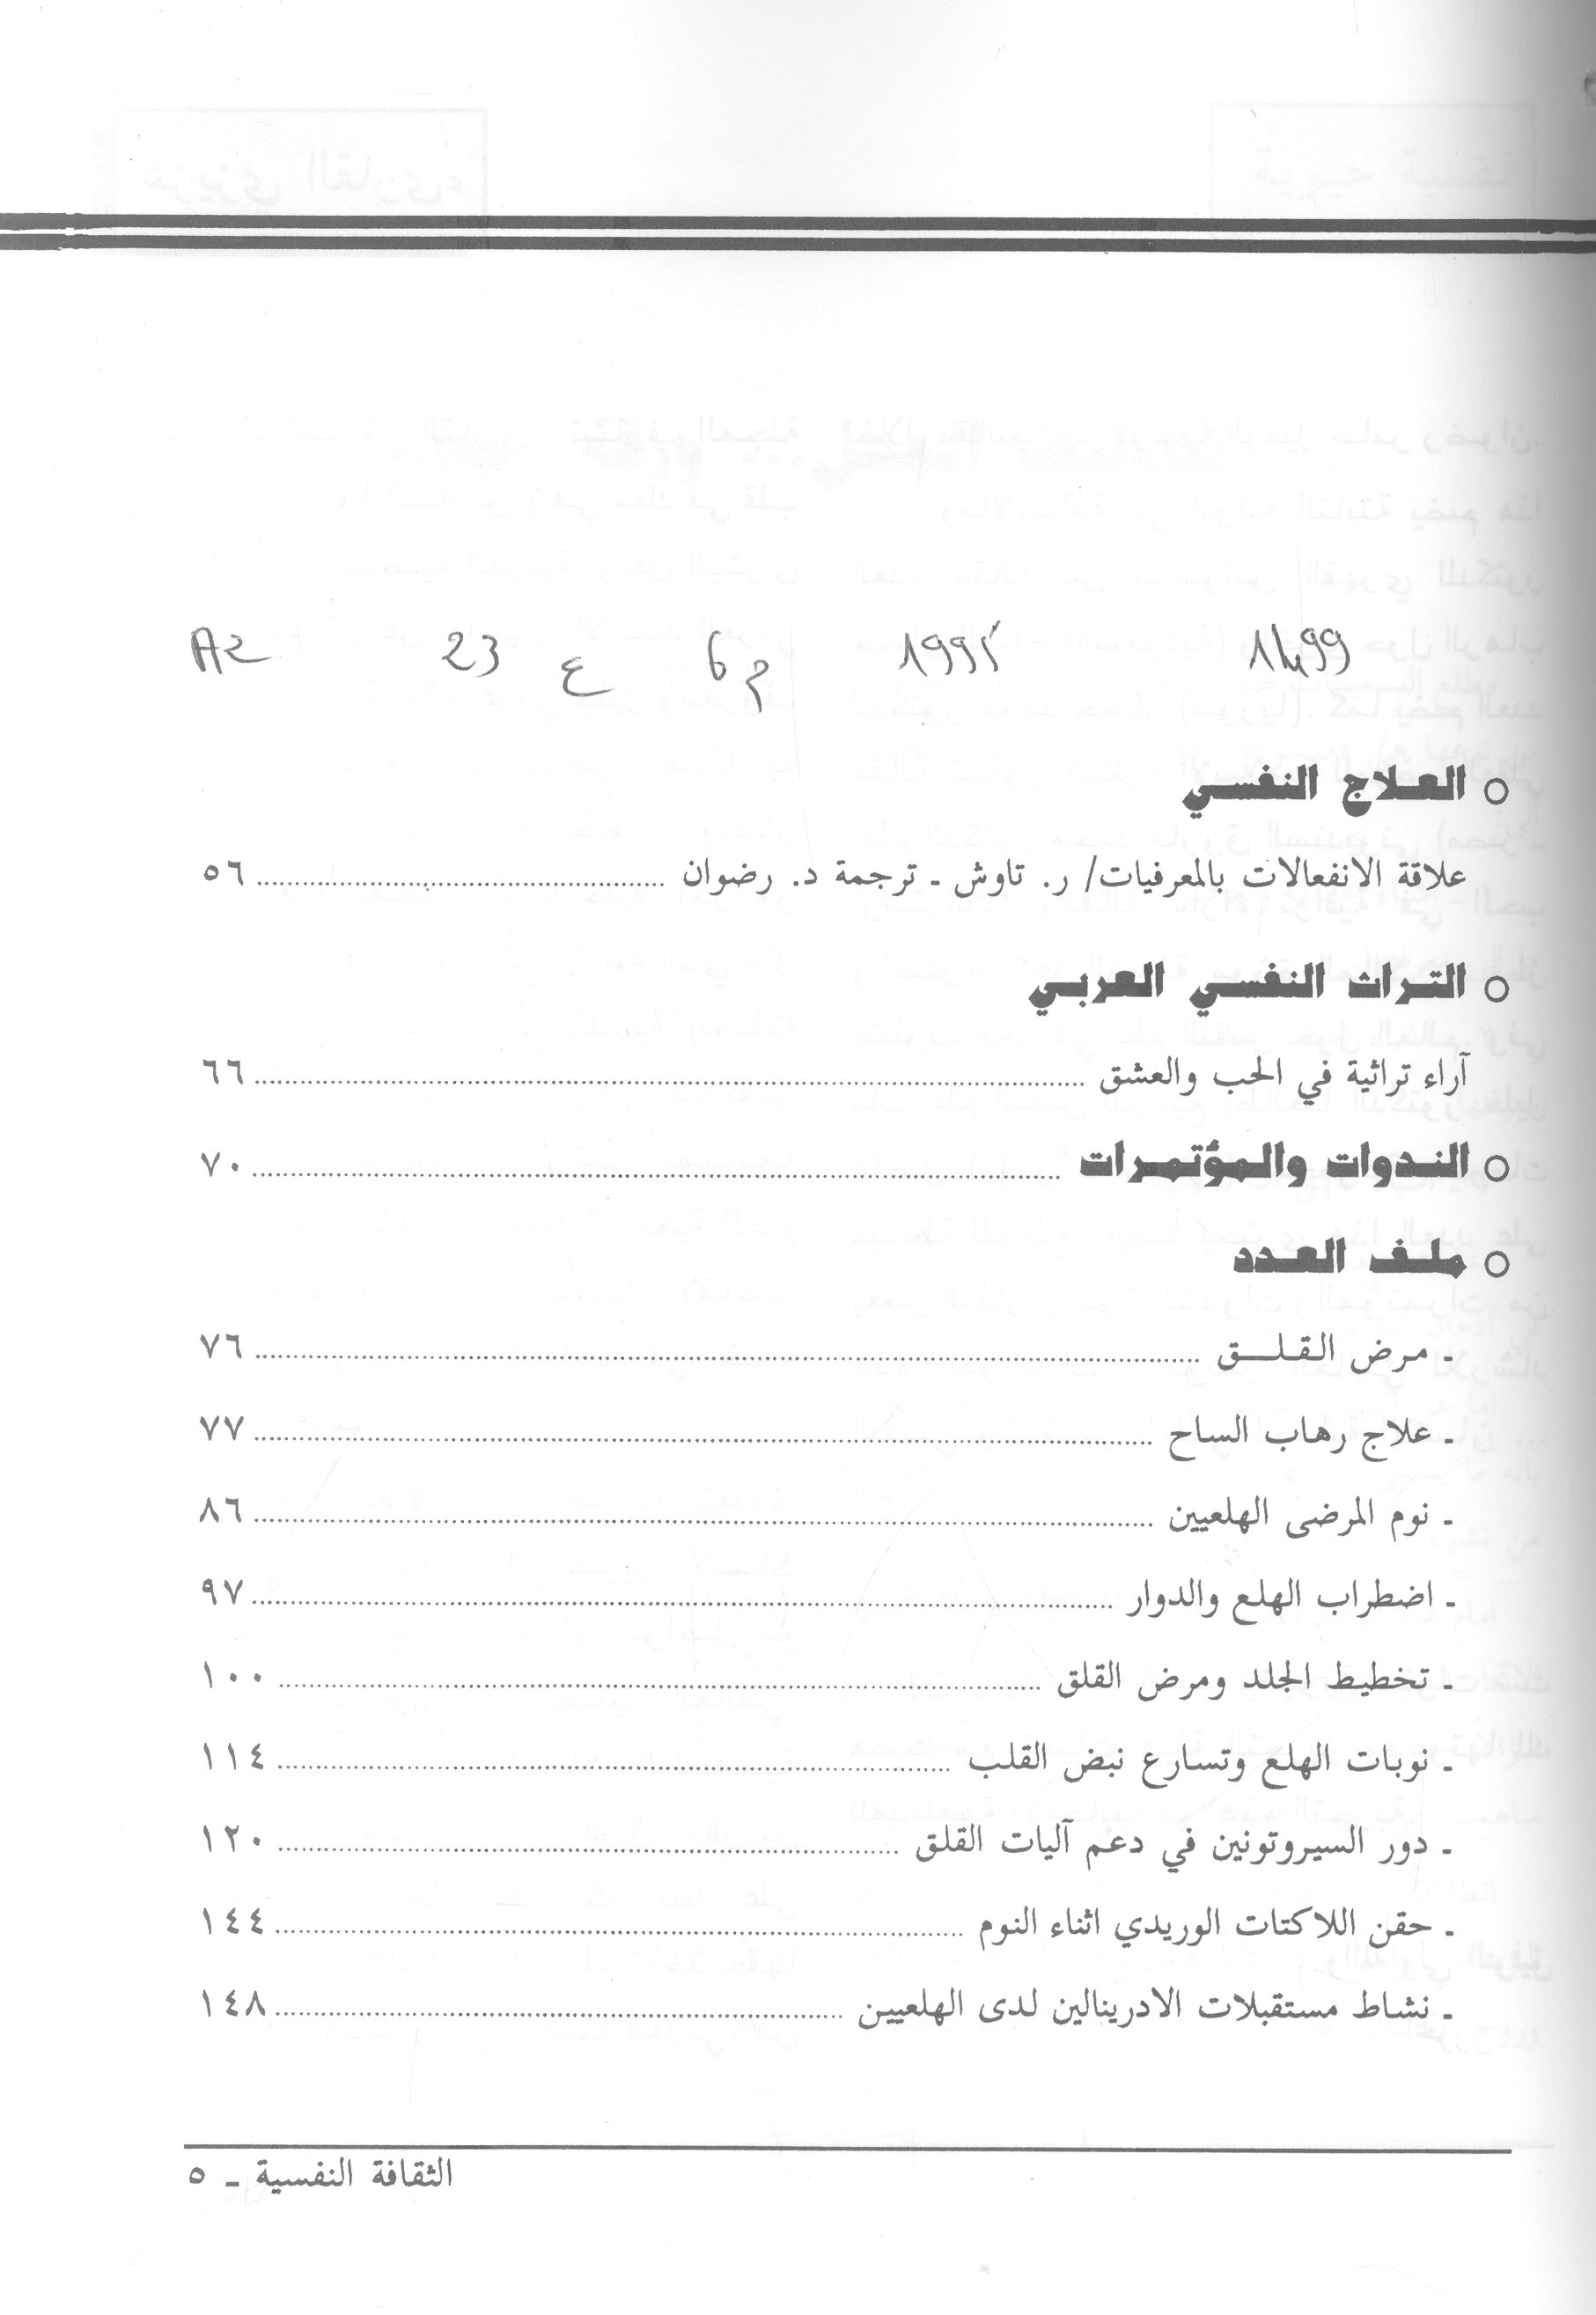 1499 1995 م 6 ع 23 A2
○ العلاج النفسي
علاقة الانفعالات بالمعرفيات/ ر. تاوش ـ ترجمة د. رضوان ........ ٥٦
○ التراث النفسي العربي
آراء تراثية في الحب والعشق ........ ٦٦
○ الندوات والمؤتمرات ........ ٧٠
○ ملف العدد
ـ مرض القلق ........ ٧٦
ـ علاج رهاب الساح ........ ٧٧
ـ نوم المرضى الهلعيين ........ ٨٦
ـ اضطراب الهلع والدوار ........ ٩٧
ـ تخطيط الجلد ومرض القلق ........ ١٠٠
ـ نوبات الهلع وتسارع نبض القلب ........ ١١٤
ـ دور السيروتونين في دعم آليات القلق ........ ١٢٠
ـ حقن اللاكتات الوريدي اثناء النوم ........ ١٤٤
ـ نشاط مستقبلات الادرينالين لدى الهلعيين ........ ١٤٨
الثقافة النفسية ـ ٥